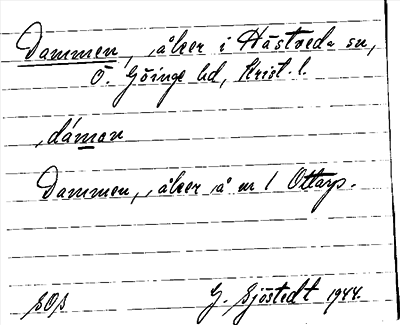 Dammen, åker i Hästveda sn,
Ö. Göinge hd, Krist. l.
dáman
Dammen, åker å nr 1 Ottarp.
G. Sjöstedt 1944.